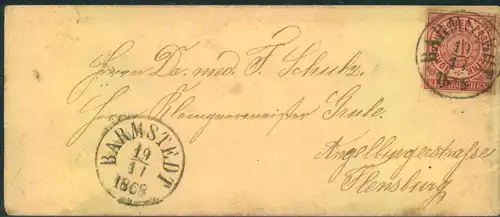 Herrn Dr. med. F. Schutz.
Herrn Klempnermeister Grube.
Angelburgerstrasse
Flensburg
BARMSTEDT
19
11
1868
BARMSTEDT
19
11
1